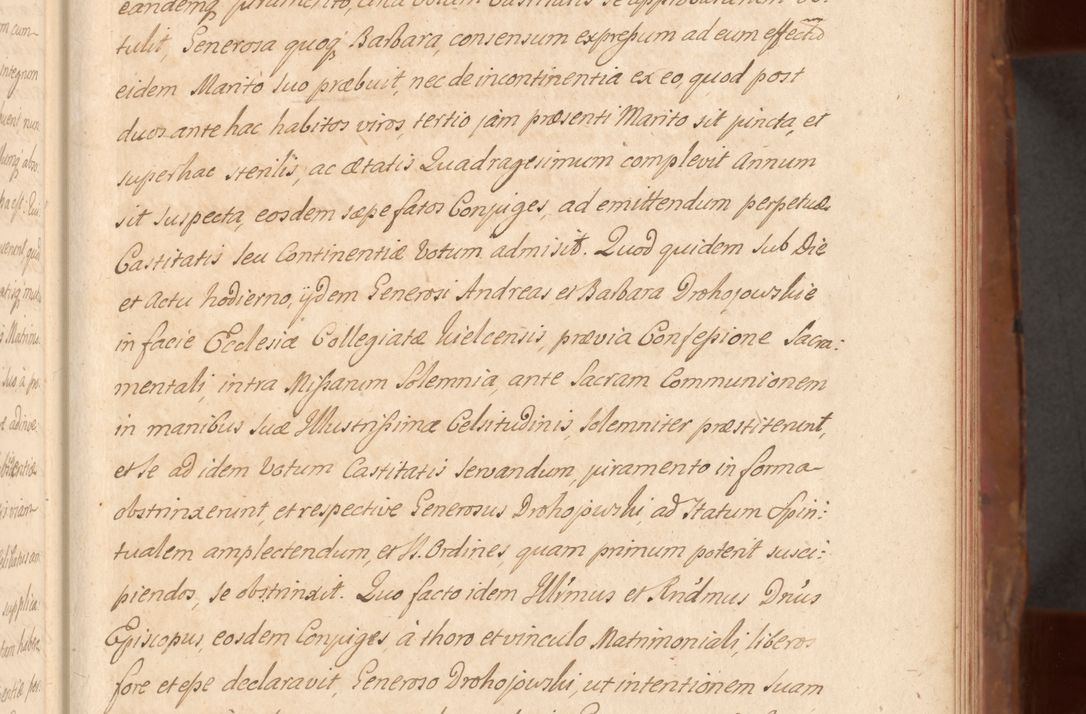 eandemq juramento,
tulit, Generosa quoq Barbara, consensum expressum ad eum effectũ
eidem Marito suo præbuit, nec de incontinentia ex eo, quod post
duos ante hac habitos viros, tertio jàm præsenti Marito sit juncta, et
super hac sterilis, ac Ætatis Quadragesimum complevit Annum
sit suspecta, eosdem sæpe fatos Conjuges, ad emittendum perpetuæ
Castitatis seu Continentiæ Votum admisit. Quod quidem sub Die
et Actu hodierno, ijdem Generosi Andreas et Barbara Drohojowskie
in facie Ecclesiæ Collegiatæ Kielcensis, prævia Confessione Sacra:
mentali, intra Missarum Solemnia, ante Sacram Communionem
in manibus suæ Illustrissimæ Celsitudinis, solemniter præstiterunt,
et se ad idem Votum Castitatis servandum, juramento in forma
obstrinxerunt, et respective Generosus Drohojowski, ad Statum Spiri:
tualem amplectendum, et SS. Ordines, quam primum poterit susci:
piendos, se obstrinxit. Quo facto idem Illr̃mus et Rńdmus Dnús
Episcopus, eosdem Conjuges, à thoro et vinculo Matrimoniali, liberos
fore et esse declaravit, Generoso Drohojowski, ut intentionem suam